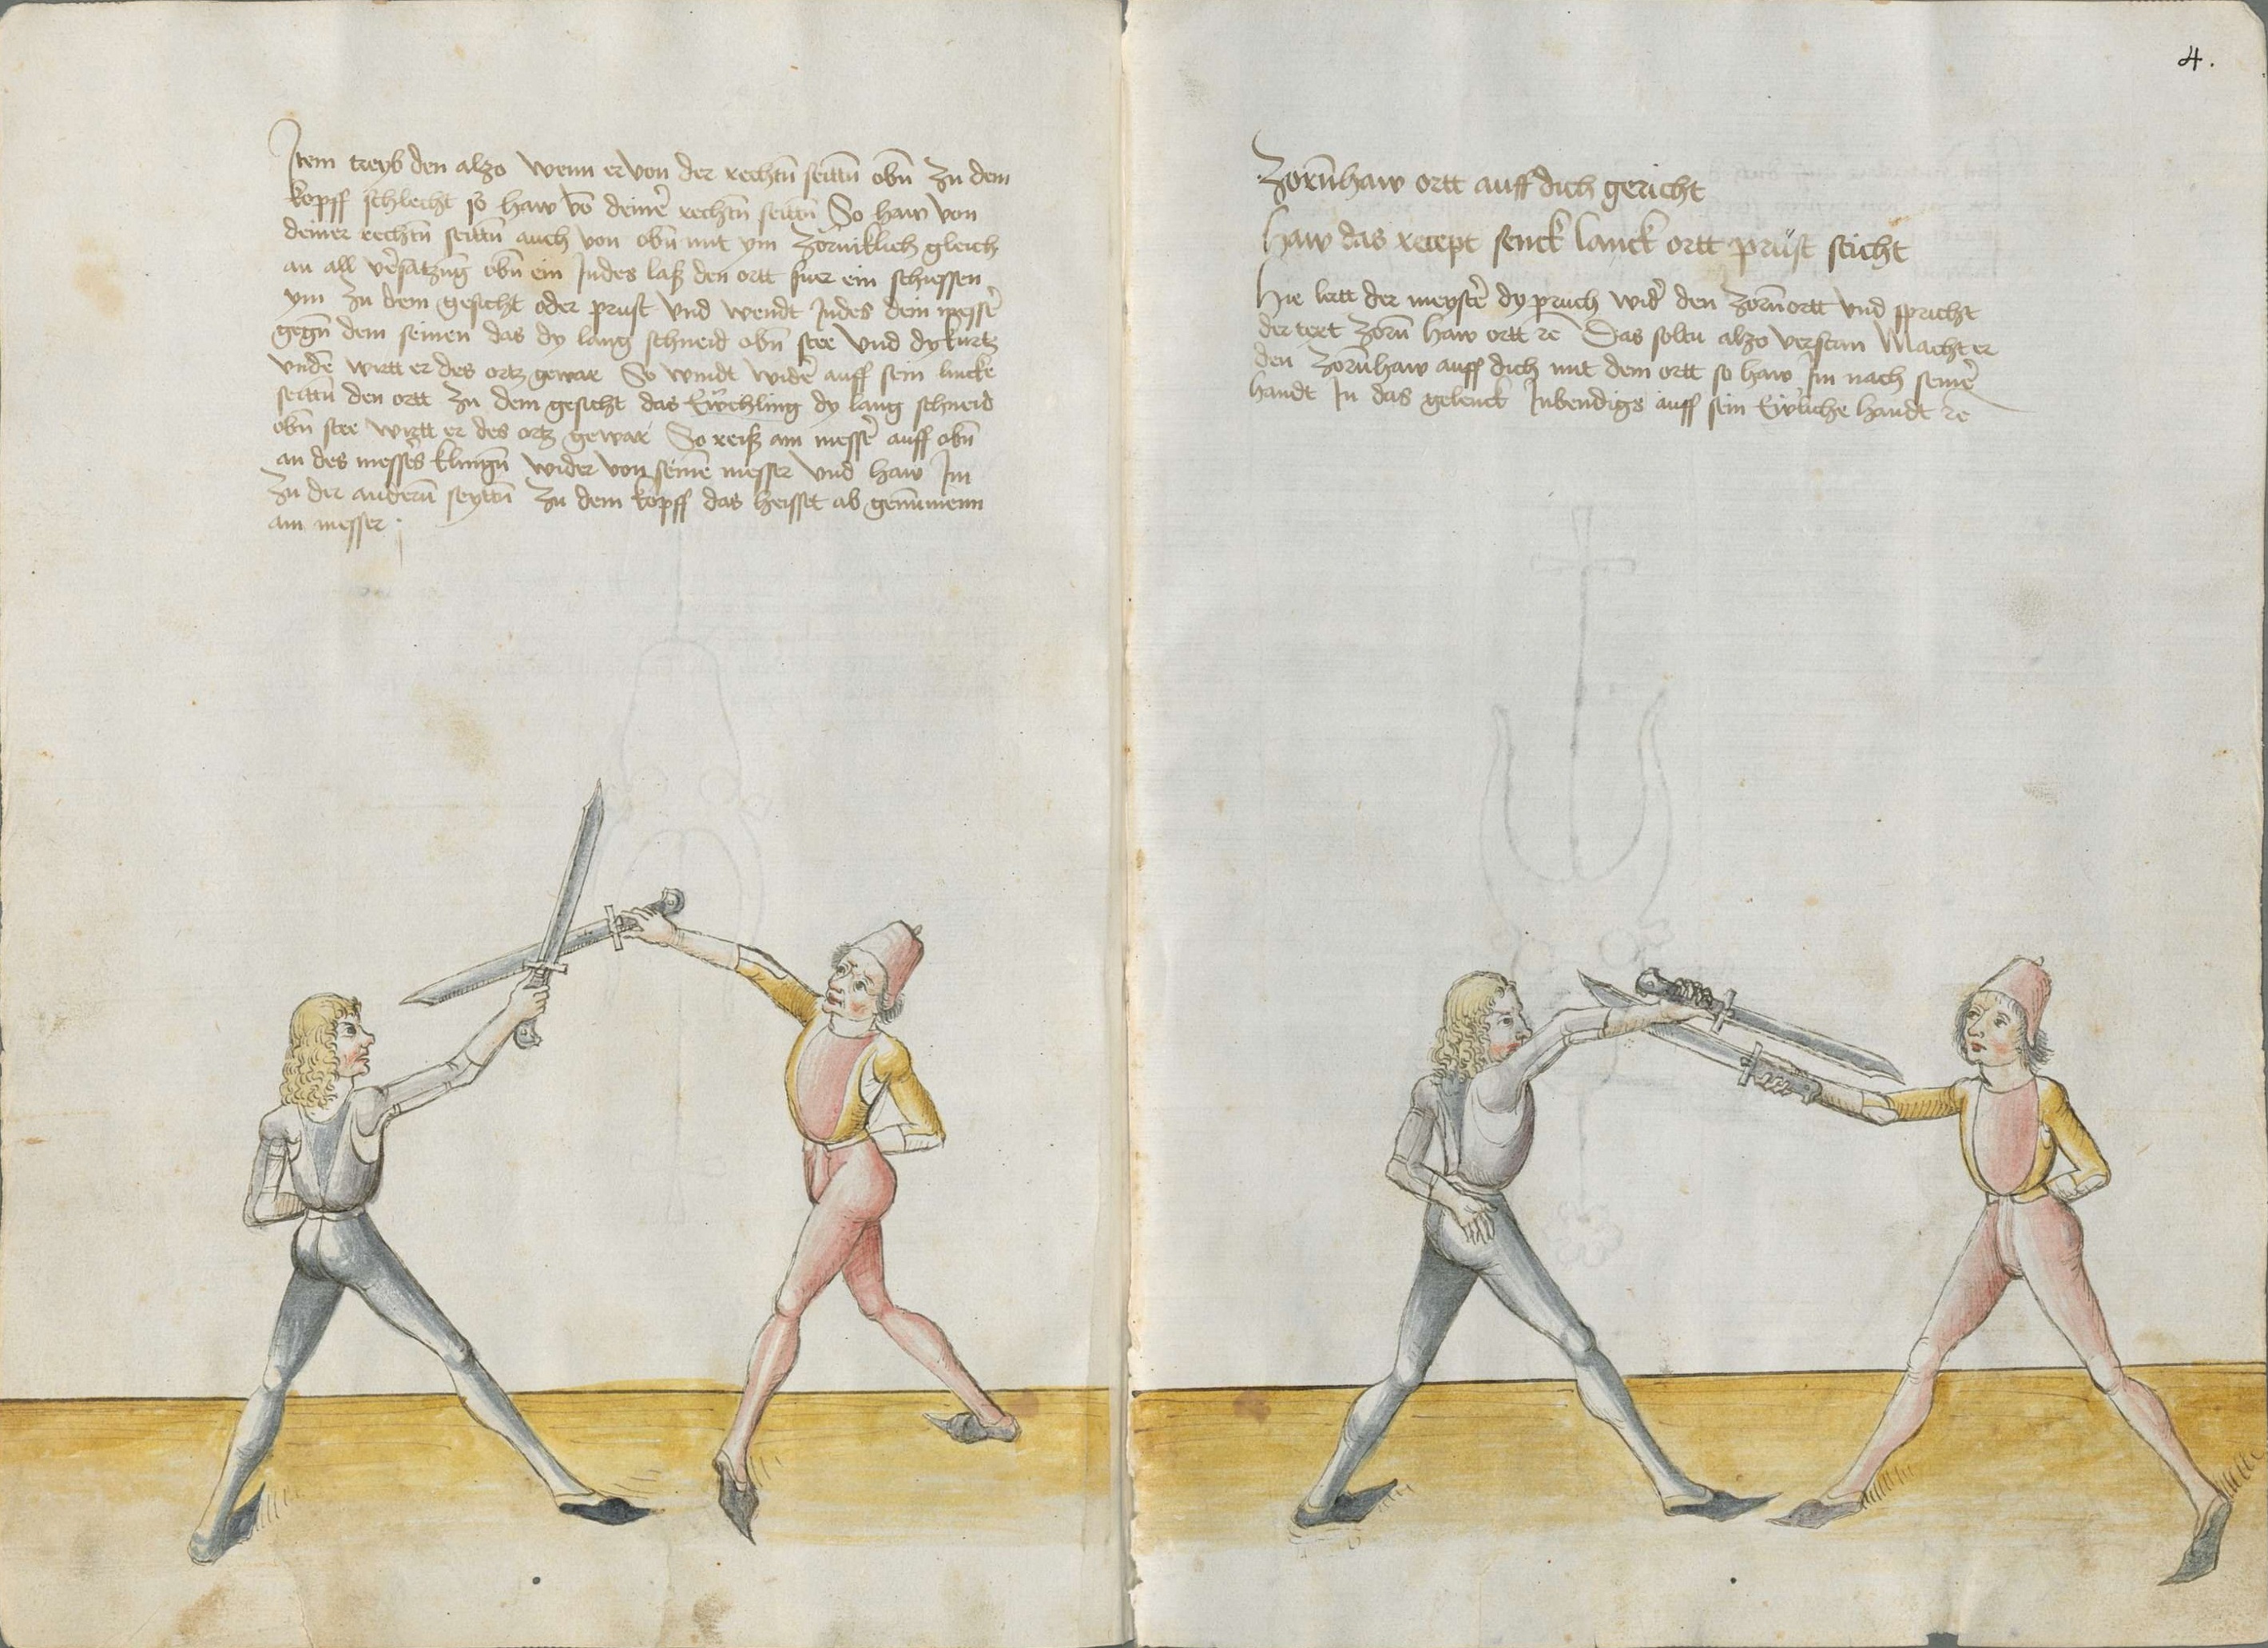 Item treyb den alzo wenn er von der rechtn̄ seittn̄ obn̄ zu dem
kopff schlecht so haw vō deinẽ rechtn̄ seittn̄ So haw von
deiner rechtn̄ seittn̄ auch von obn̄ mit ym zorniklich gleich
an all vẽsatzūg obn̄ ein Indes laß den ortt fuer ein schiessen
ym zu dem gesicht oder prust vnd wendt Indes dein messẽ
gegn̄ dem seinen das dy lang schneid obn̄ stee vnd dy kurtz
vndẽ wirtt er des ortz gewar So windt widẽ auff sein lincke
seittn̄ den ortt zu dem gesicht das ewchling dy lang schneid
obn̄ stee wirtt er des ortz gewar So reiß am messẽ auff obn̄
an des messes klingn̄ wider von seinē messer vnd haw Im
zu der anderñ seyttn̄ zu dem kopff das heisset ab genūmenn
am messer
4.
Zorñhaw ortt auff dich gericht
haw das recept senck lanck ortt prüst sticht
Hie lertt der meystẽ dy pruch widẽ den zorñortt vnd spricht
der text zorñ haw ortt rē Das soltu alzo verstan Macht er
den zorñhaw auff dich mit dem ortt so haw Im nach seinẽ
handt In das gelenck Inbendigs auff sein ewiche handt rē